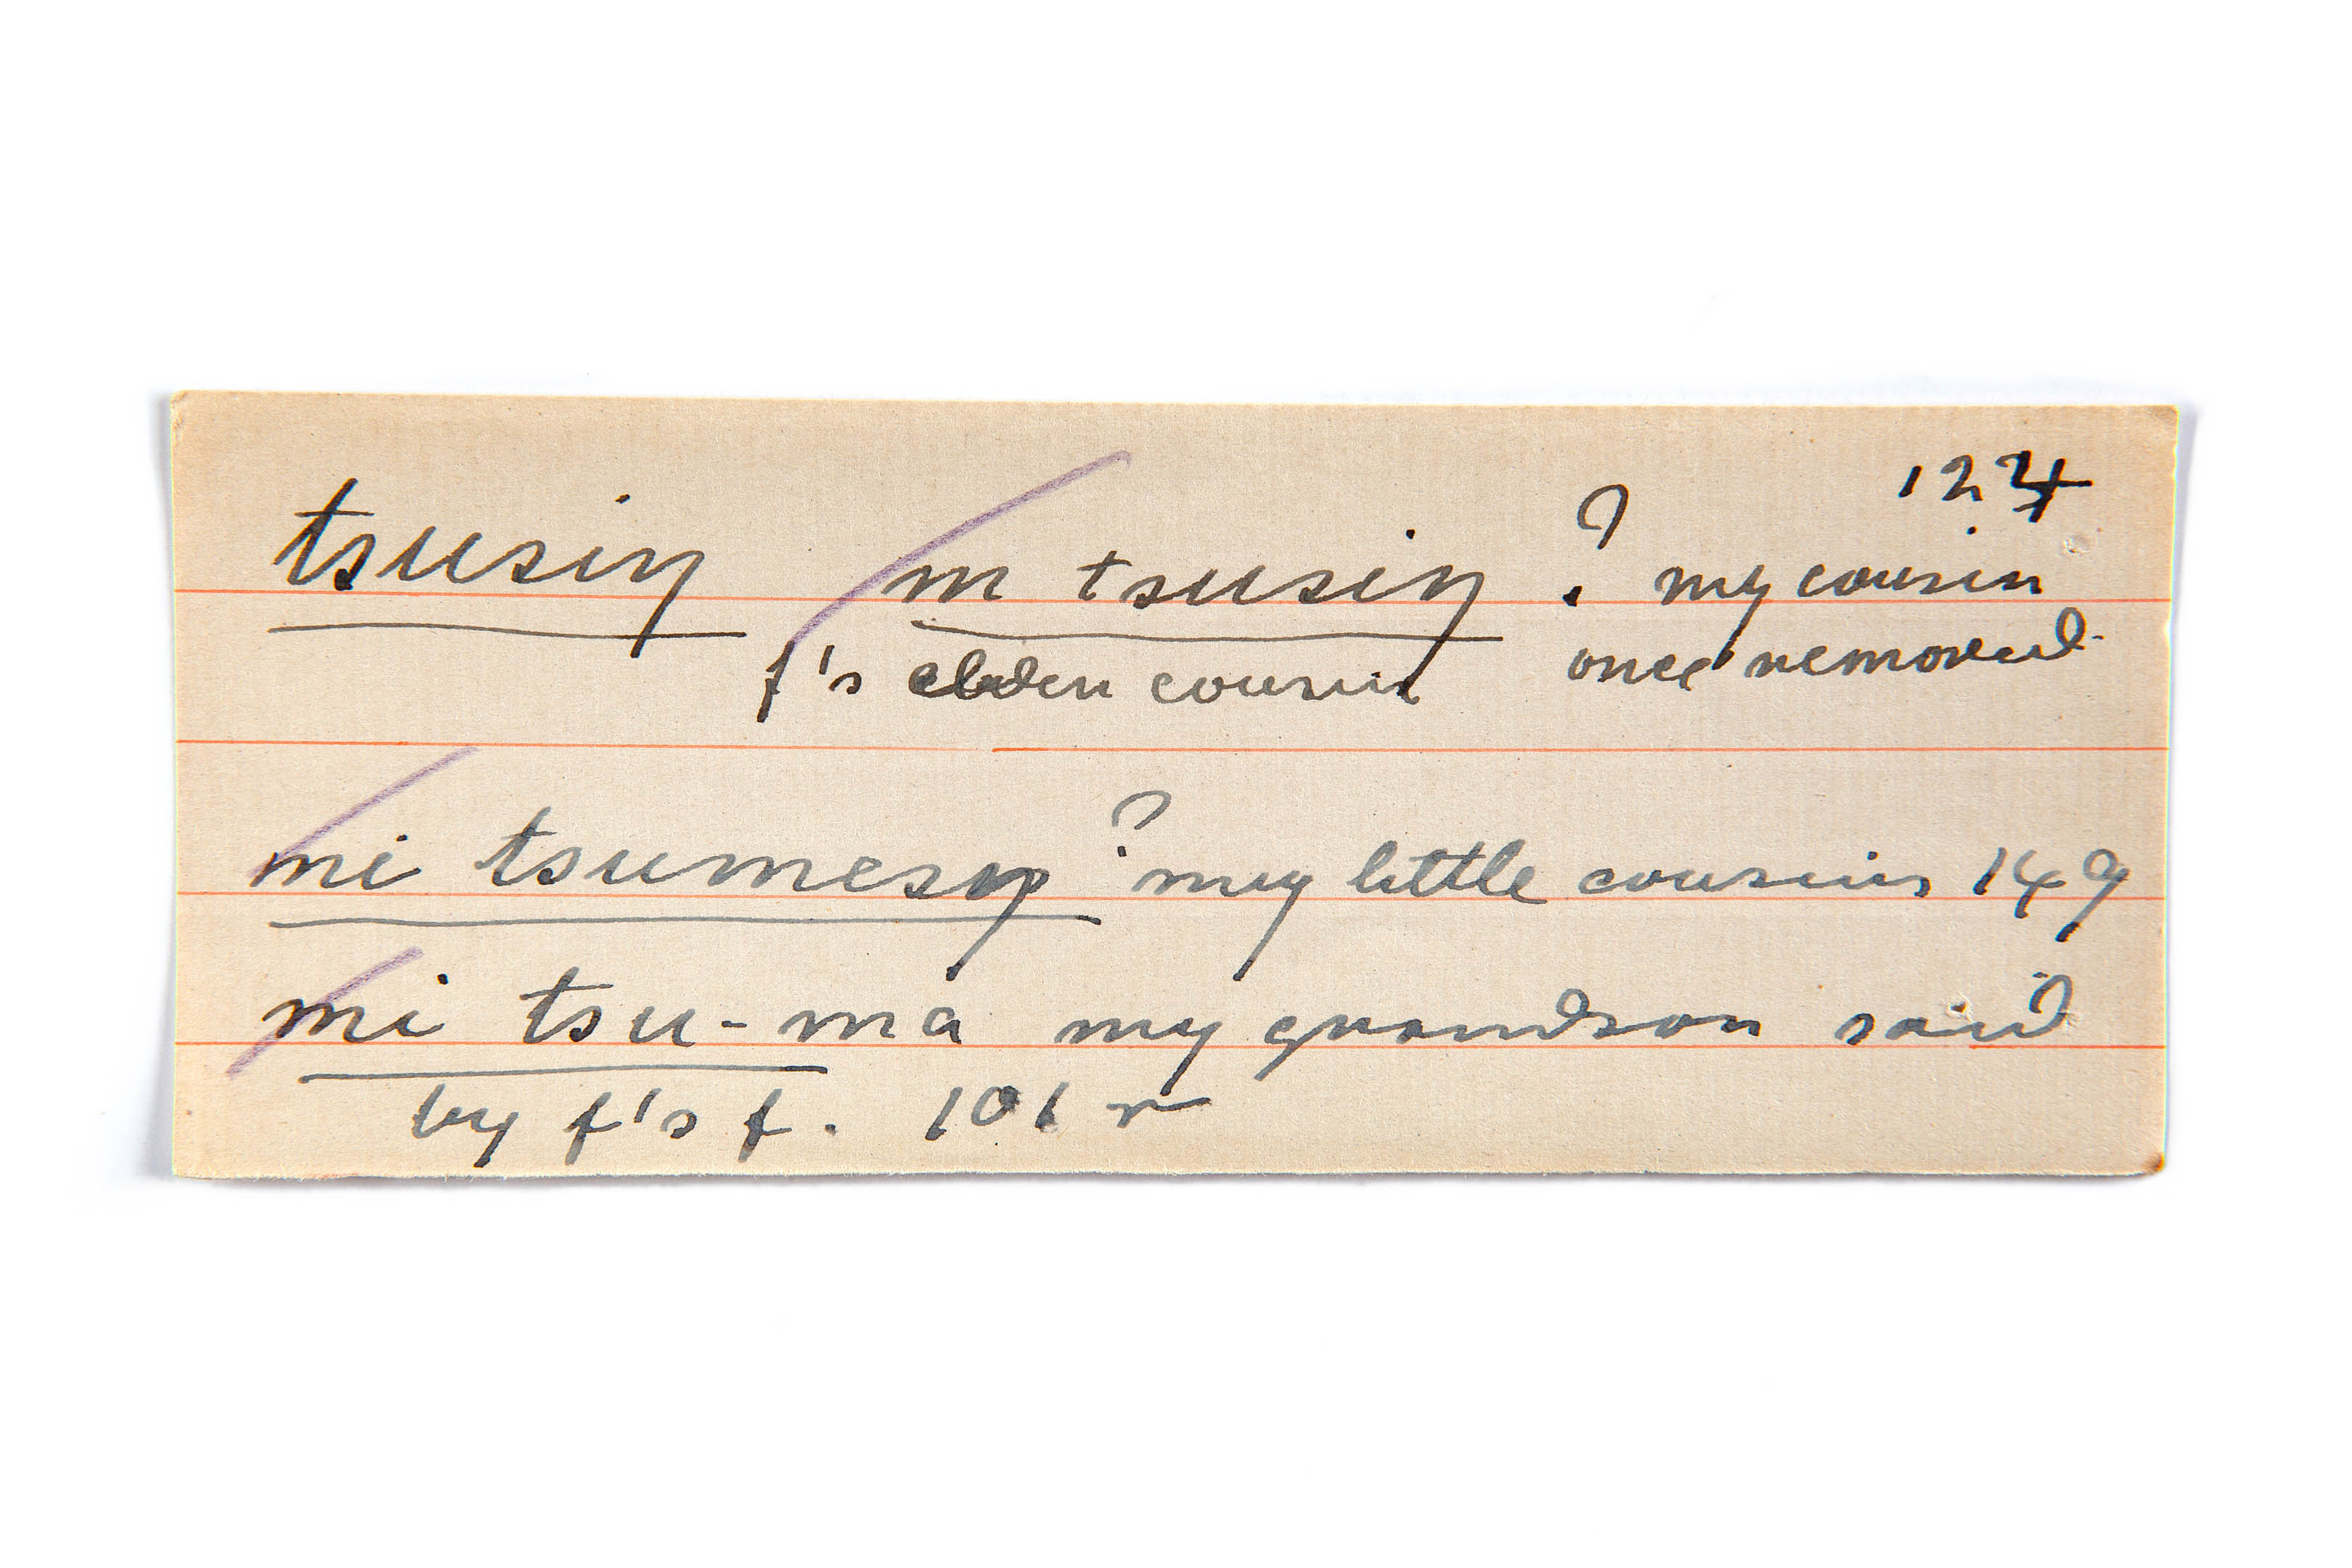 tsusiŋ m tsusiŋ ? my cousin 124
f's elder cousin once removed
mi tsumesŋ ? my little cousins 149
mi tsu-ma my grandson said
by f's f. 101 r